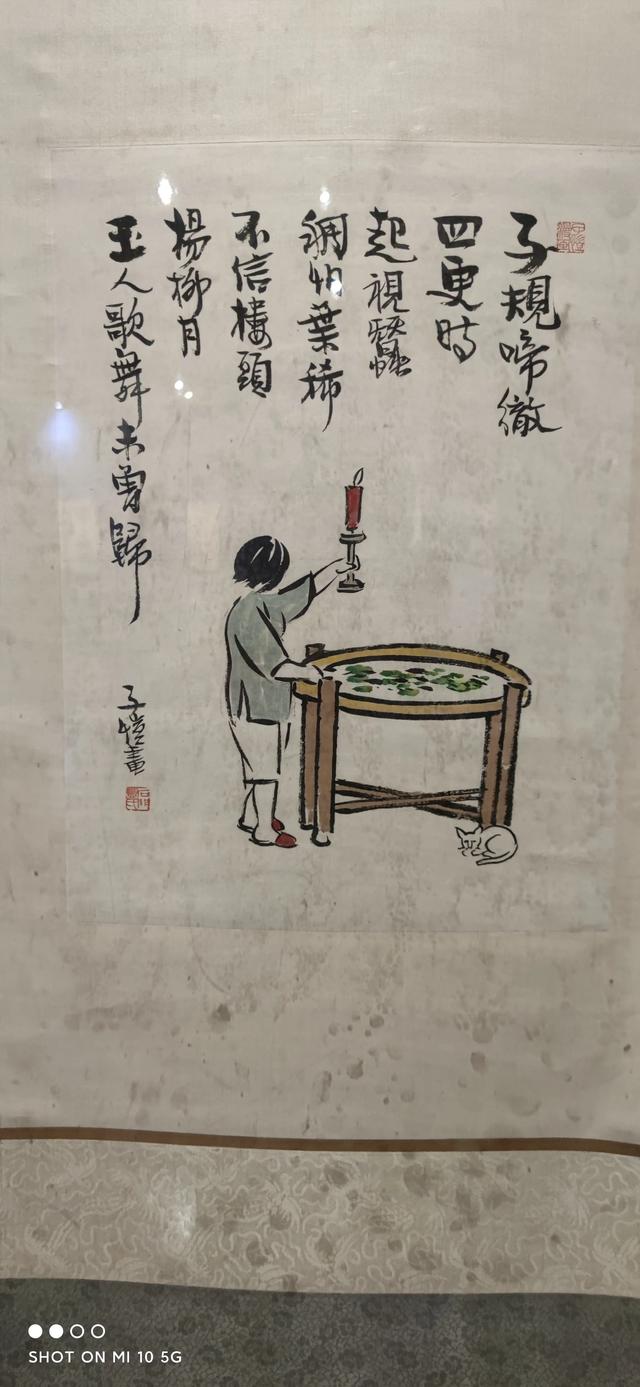 子規啼徹
四更時
起視蠶
稠怕葉稀
不信樓頭
楊柳月
玉人歌舞未曾歸
子愷畫
SHOT ON MI 10 5G